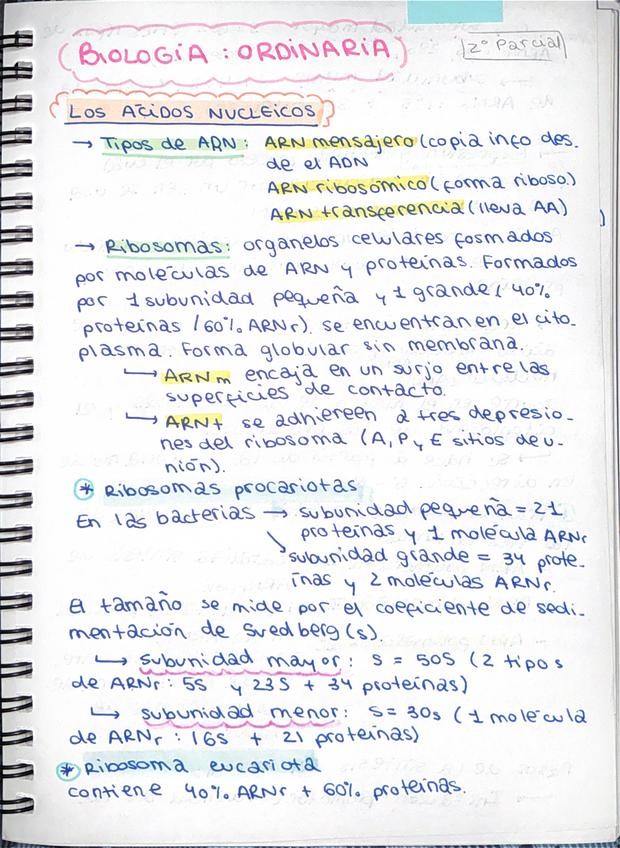 BIOLOGÍA : ORDINARIA
2º Parcial
LOS ÁCIDOS NUCLEICOS
→ Tipos de ARN: ARN mensajero (copia info des.
de el ADN
ARN ribosómico (forma riboso.)
ARN transferencia (lleva AA)
→ Ribosomas: organelos celulares fosmados
por moléculas de ARN y proteínas. Formados
por 1 subunidad pequeña y 1 grande ( 40%
proteínas / 60% ARNr). se encuentran en el cito-
plasma. Forma globular sin membrana.
↳ ARNm encaja en un surjo entre las
superficies de contacto.
↳ ARNt se adhiereen a tres depresio-
nes del ribosoma (A, P y E sitios de u-
nión).
* Ribosomas procariotas
En las bacterias → subunidad pequeña = 21
proteínas y 1 molécula ARNr
↘ subunidad grande = 34 prote-
ínas y 2 moléculas ARNr.
El tamaño se mide por el coeficiente de sedi-
mentación de Svedberg (s).
↳ subunidad mayor: S = 50S (2 tipos
de ARNr: 5S y 23S + 34 proteínas)
↳ subunidad menor: S= 30s (1 molécula
de ARNr: 16S + 21 proteínas)
* Ribosoma eucariota
contiene 40% ARNr + 60% proteínas.